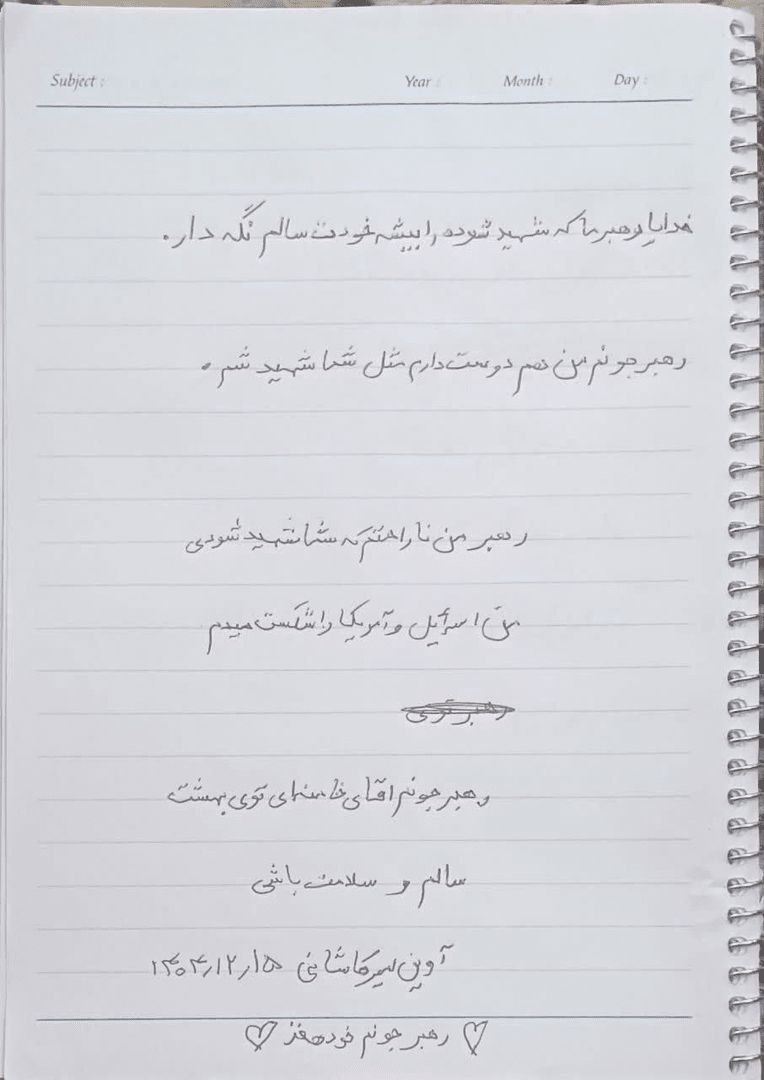 Subject :
Year :
Month :
Day :
خدایا رهبر ما که شهید شوده را بیشه خودت سالم نگه دار.
رهبر جونم من هم دوست دارم مثل شما شهید شم.
رهبر من ناراحتم که شما شهید شودی
من اسرائیل و آمریکا را شکست میدم
رهبر توی
رهبر جونم اقای خامنه‌ای توی بهشت
سالم و سلامت باشی
آوین میرکاشانی ۱۴۰۴/۱۲/۱۵
♡ رهبر جونم خودهافز ♡